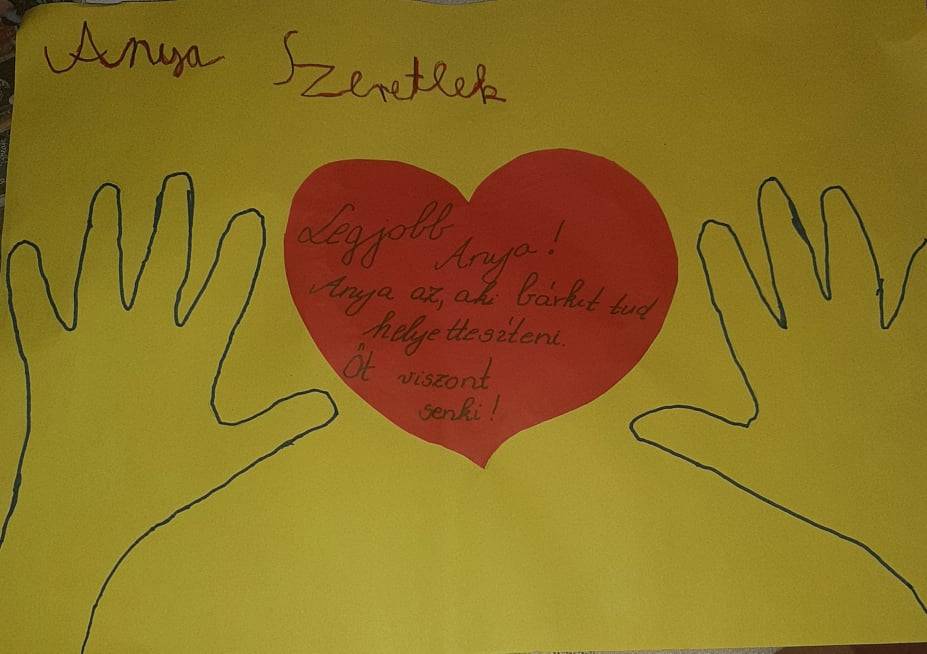 Anya Szeretlek
Legjobb
Anya!
Anya az, aki bárkit tud
helyettesíteni.
Őt viszont
senki!